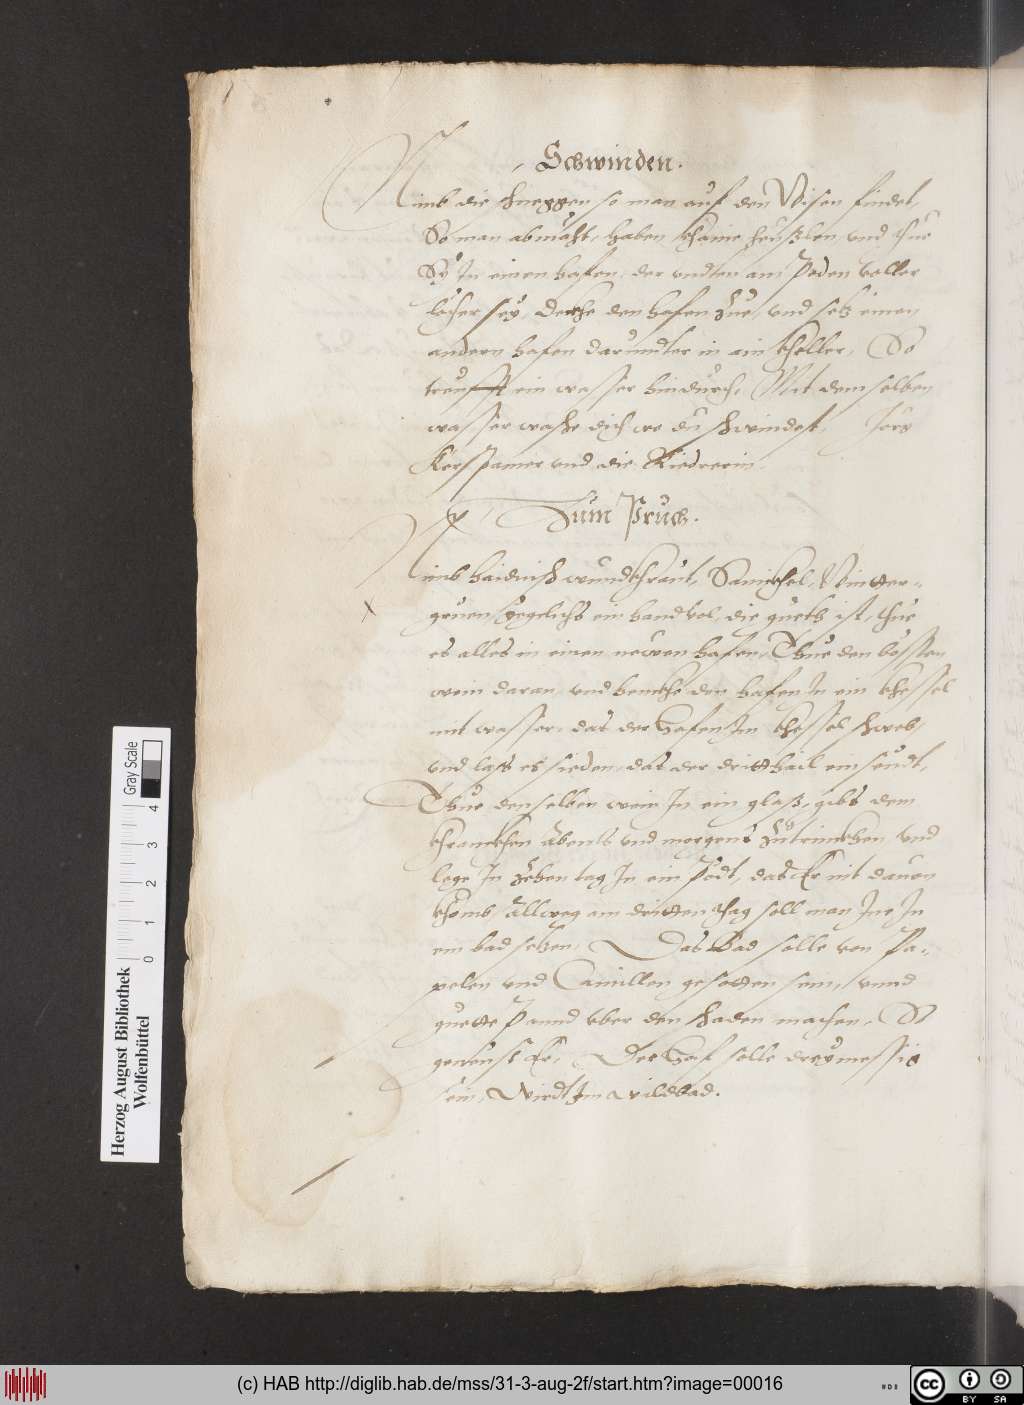 Schwinden.
Nimb die schneggen so man auf den Wisen findet,
So man abmäht, haben khaine heüßlen und thue
Sy In einen hafen, der undten am Poden voller
löcher sey, Deckhe den hafen zue, und setz einen
andern hafen darundter in ain kheller, So
treufft ein wasser hindurch, Mit demselben
wasser wasche dich wo du schwindest, Jörg
Kerspamer und die Riedrerin.
Zum Pruch.
Nimb haidnisch wundkhraut, Sanickhel, Wintter-
gruen yegelichs ein handvol, die gueth ist, thue
es alles in einen newen hafen, Thue den bessten
wein daran, und henckhe den hafen In ein khessel
mit wasser, das der hafen Im khessel schweb,
und lass es sieden, das der dritthail einseudt,
Thue denselben wein In ein glaß, gibs dem
khranckhen Abents und morgens zutrinckhen und
lege In zehen tag In ein Pedt, das Er nit davon
khomb, Allweg am dritten thag soll man Ine In
ein bad setzen, Das Bad solle von Pa-
pelen und Camillen gesotten sein, unnd
guette Pannd uber den schaden machen, So
genist Er, Der Haf solle dreymessig
sein, Wirdt Im a wildbad.
Herzog August Bibliothek
Wolfenbüttel
0 1 2 3 4
Gray Scale
(c) HAB http://diglib.hab.de/mss/31-3-aug-2f/start.htm?image=00016
cc BY SA